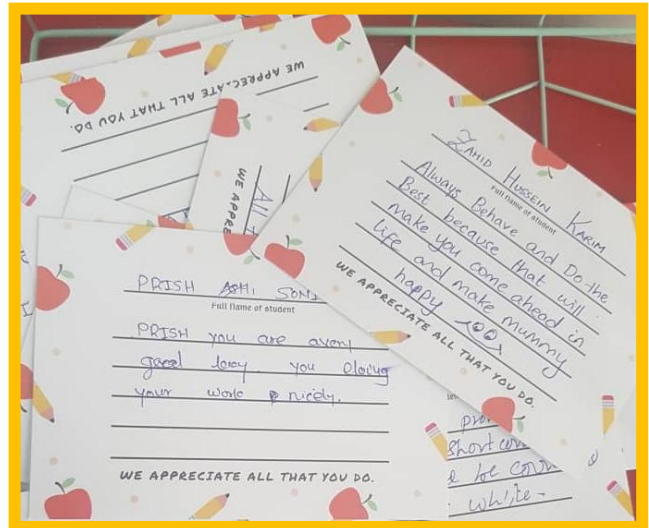 WE APPRECIATE ALL THAT YOU DO.
All
WE APPRE
ZAHID HUSSEIN KARIM
Full name of student
Always Behave and Do the
Best because that will
make you come ahead in
life and make mummy
happy
WE APPRECIATE ALL THAT YOU DO.
PRISH ASHI SONI
Full name of student
PRISH you are avery
good boy. you doing
your work nicely.
WE APPRECIATE ALL THAT YOU DO.
Short
be
white-